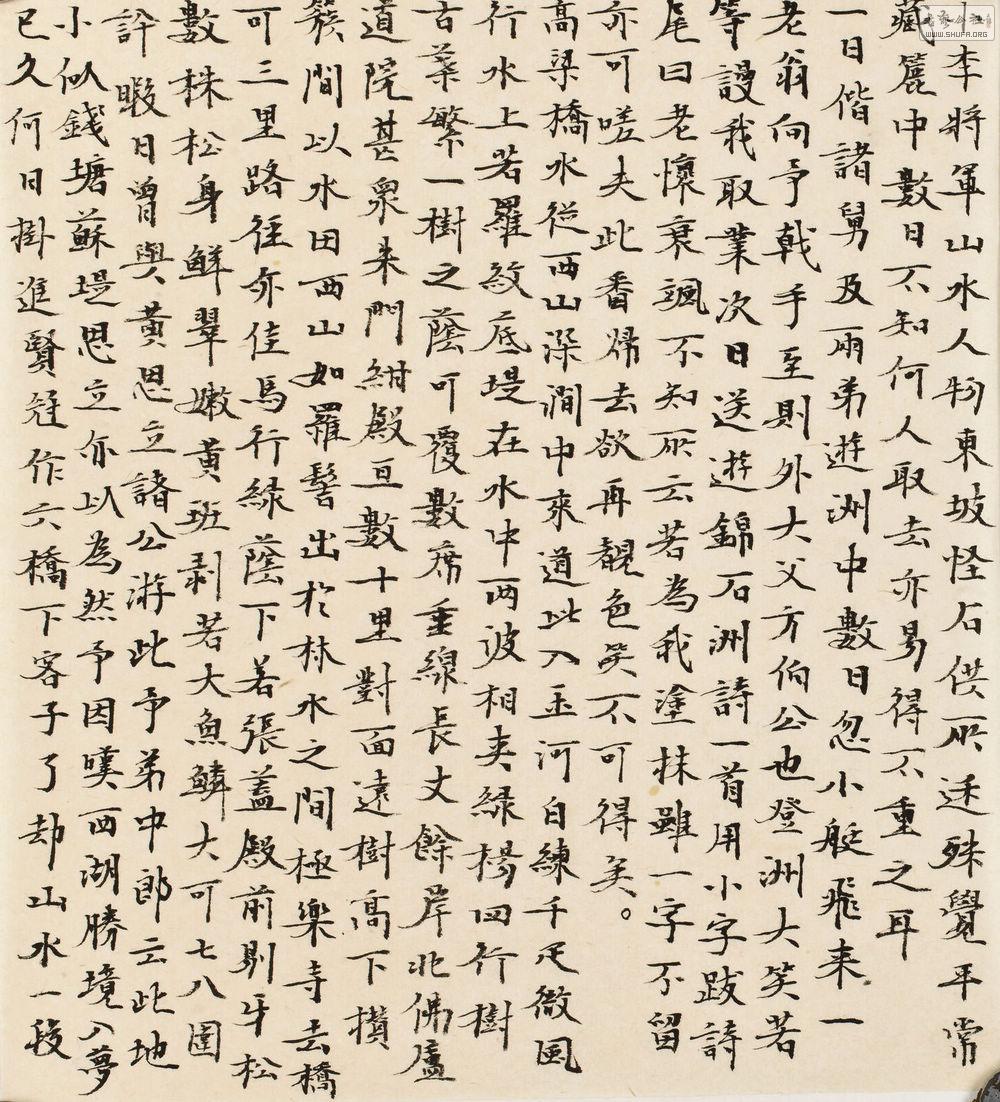 小李將軍山水人物東坡怪石供所述殊覺平常
藏簏中數日不知何人取去亦易得不重之耳
一日偕諸舅及兩弟遊洲中數日忽小艇飛来一
老翁向予戟手至則外大父方伯公也登洲大笑若
等謾我取業次日送遊錦石洲詩一首用小字跋詩
尾曰老懷衰颯不知所云若為我塗抹雖一字不留
亦可嗟夫此番歸去欲再覩色笑不可得矣。
高梁橋水從西山深澗中來道此入玉河白練千疋微風
行水上若羅紋底堤在水中兩波相夾綠楊四行樹
古葉繁一樹之蔭可覆數席垂線長丈餘岸北佛廬
道院甚衆朱門紺殿亘數十里對面遠樹高下攢
簇間以水田西山如羅髻出於林水之間極樂寺去橋
可三里路徑亦佳馬行綠蔭下若張蓋殿前剔牙松
數株松身鮮翠嫩黃班剥若大魚鱗大可七八圍
許暇日曾與黃思立諸公游此予弟中郎云此地
小似錢塘蘇堤思立亦以為然予因嘆西湖勝境入夢
已久何日掛進賢冠作六橋下客子了却山水一段
www.SHUFA.ORG